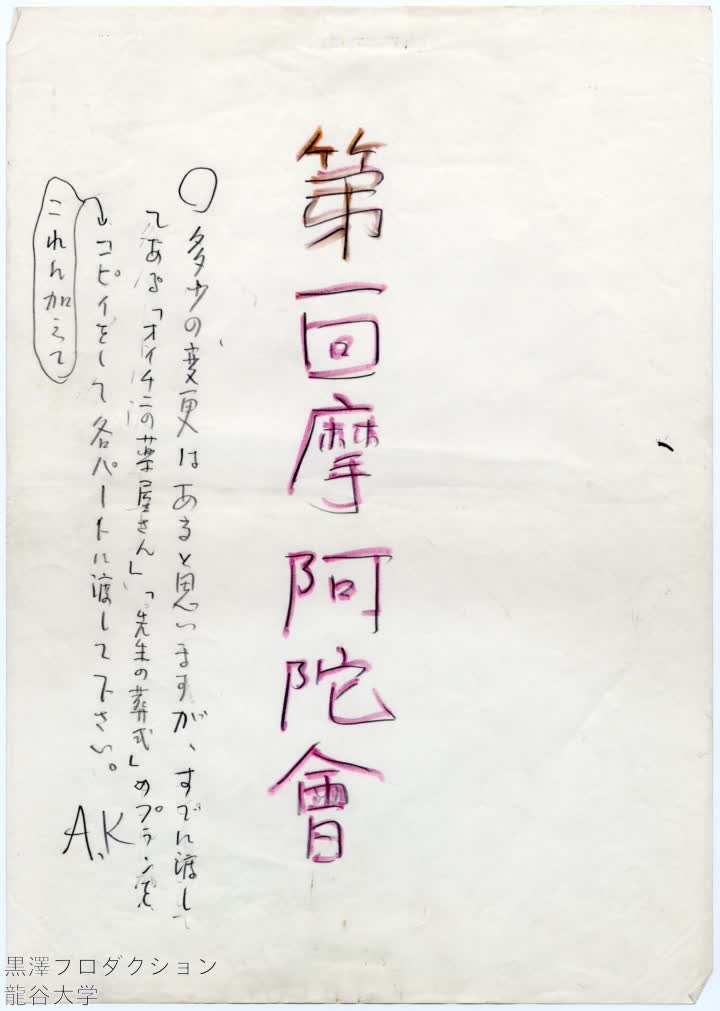 第一回摩阿陀會
○多少の変更はあると思いますが、すでに渡して
てある「オイチニの薬屋さん」「先生の葬式」のプランを
→コピイをして各パートに渡して下さい。
これに加えて
A.K
黒澤プロダクション
龍谷大学